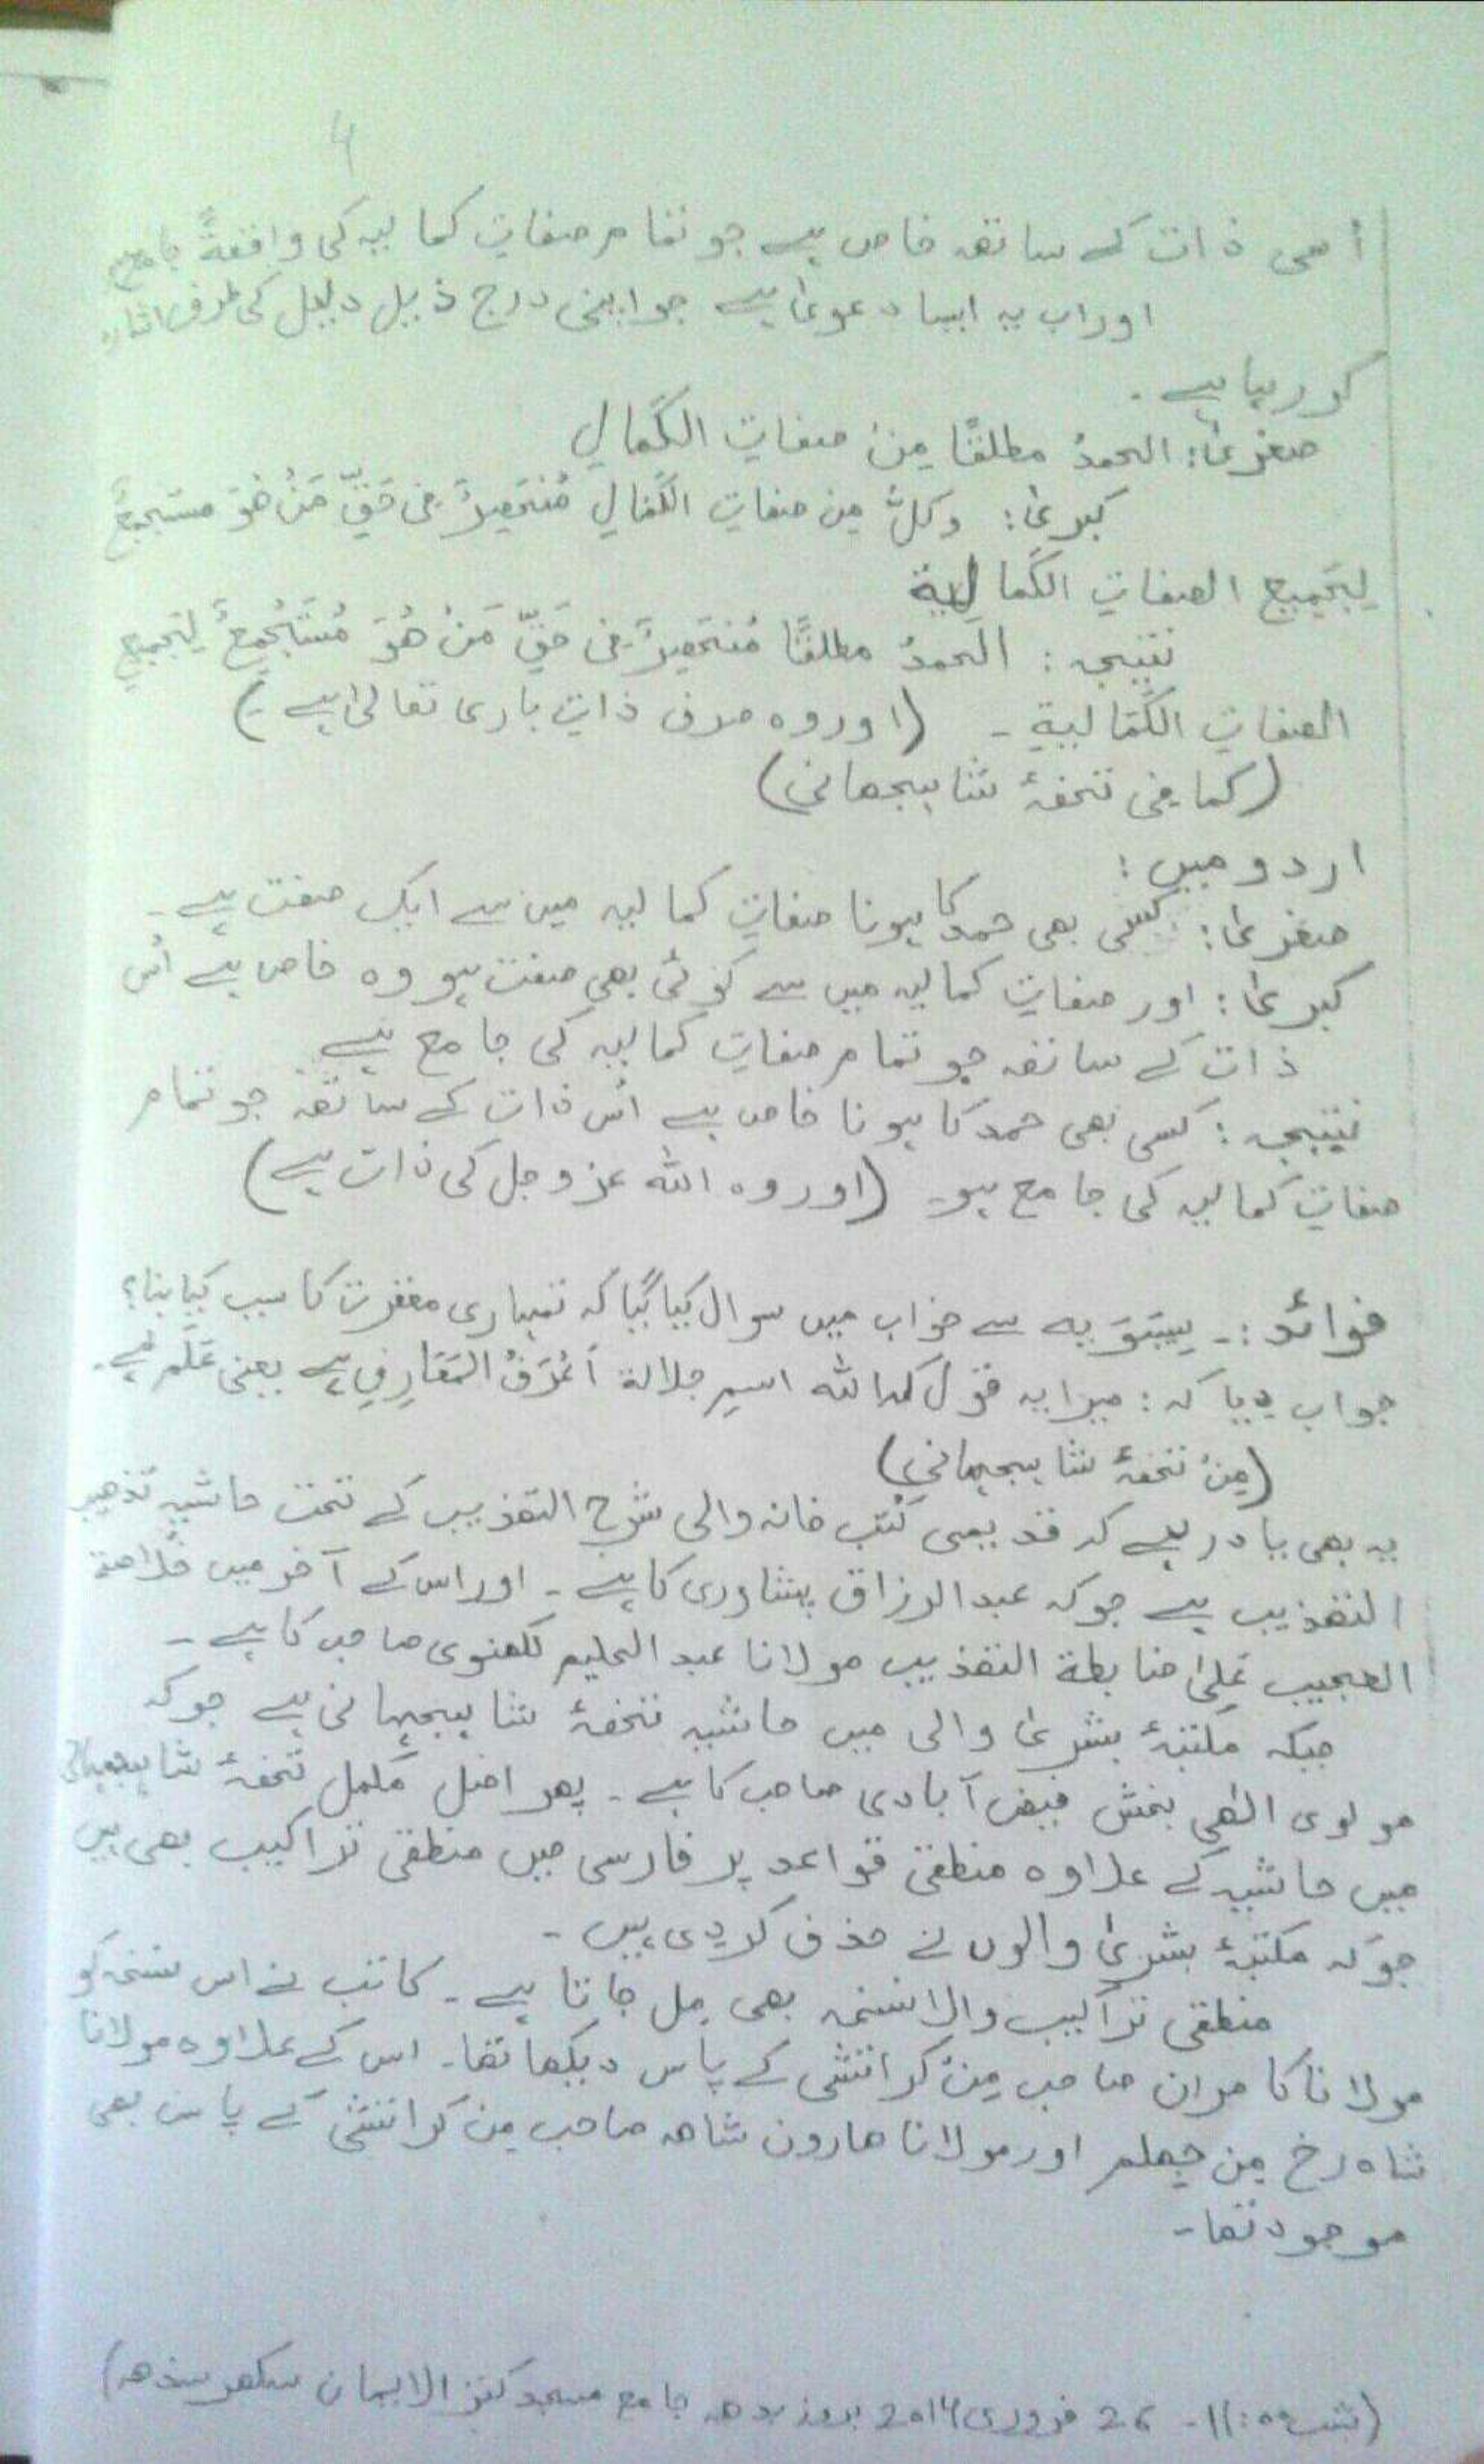 4
اُسی ذات کے ساتھ خاص ہے جو تمام صفاتِ کمالیہ کی واقعۃً جامع
اور اب یہ ایسا دعویٰ ہے جو اپنی درج ذیل دلیل کی طرف اشارہ
کر رہا ہے ۔
صغریٰ: الحمدُ مطلقًا مِنْ صفاتِ الکَمالِ
کبریٰ: وکلٌّ مِن صفاتِ الکَمالِ مُنْحَصِرٌ فی حَقِّ مَنْ ھُوَ مستجمعٌ
لِجَمیعِ الصفاتِ الکَمالیۃ
نتیجہ : الحمدُ مطلقًا مُنْحَصِرٌ فی حَقِّ مَنْ ھُوَ مُسْتَجْمِعٌ لِجَمیعِ
الصفاتِ الکَمَالیۃِ ۔ (اور وہ صرف ذاتِ باری تعالیٰ ہے ۔)
(کما فی تحفۂ شاہجھانی)
اردو میں :
صغریٰ: کسی بھی حمد کا ہونا صفاتِ کمالیہ میں سے ایک صفت ہے ۔
کبریٰ: اور صفاتِ کمالیہ میں سے کوئی بھی صفت ہو وہ خاص ہے اُس
ذات کے ساتھ جو تمام صفاتِ کمالیہ کی جامع ہے
نتیجہ : کسی بھی حمد کا ہونا خاص ہے اُس ذات کے ساتھ جو تمام
صفاتِ کمالیہ کی جامع ہو ۔ (اور وہ اللہ عزوجل کی ذات ہے)
فوائد :۔ سِیبَوَیہ سے خواب میں سوال کیا گیا کہ تمہاری مغفرت کا سبب کیا بنا؟
جواب دیا کہ : میرا یہ قول کہ اللہ اسمِ جلالۃ أَعْرَفُ المَعَارِفِ ہے یعنی عَلَم ہے۔
(مِنْ تحفۂ شاہجہانی)
یہ بھی یاد رہے کہ قدیمی کُتب خانہ والی شرح التھذیب کے تحت حاشیہ تذھیب
التھذیب ہے جو کہ عبدالرزاق پشاوری کا ہے ۔ اور اس کے آخر میں خلاصۃ
العجیب عَلیٰ ضابطۃ التھذیب مولانا عبدالحلیم لکھنوی صاحب کا ہے ۔
جبکہ مکتبۂ بشریٰ والی میں حاشیہ تحفۂ شاہجہانی ہے جو کہ
مولوی الٰھی بخش فیض آبادی صاحب کا ہے ۔ پھر اصل مکمل تحفۂ شاہجہانی
میں حاشیہ کے علاوہ منطقی قواعد پر فارسی میں منطقی تراکیب بھی ہیں
جو کہ مکتبۂ بشریٰ والوں نے حذف کر دی ہیں ۔
منطقی تراکیب والا نسخہ بھی مل جاتا ہے ۔ کاتب نے اس نسخہ کو
مولانا کامران صاحب مِنْ کراتشی کے پاس دیکھا تھا۔ اس کے علاوہ مولانا
شاہ رخ مِن جہلم اور مولانا ھارون شاھ صاحب مِن کراتشی کے پاس بھی
موجود تھا ۔
(شب 11:00 ۔ 26 فروری 2014 بروز بدھ جامع مسجد کنز الایمان سکھر سندھ)